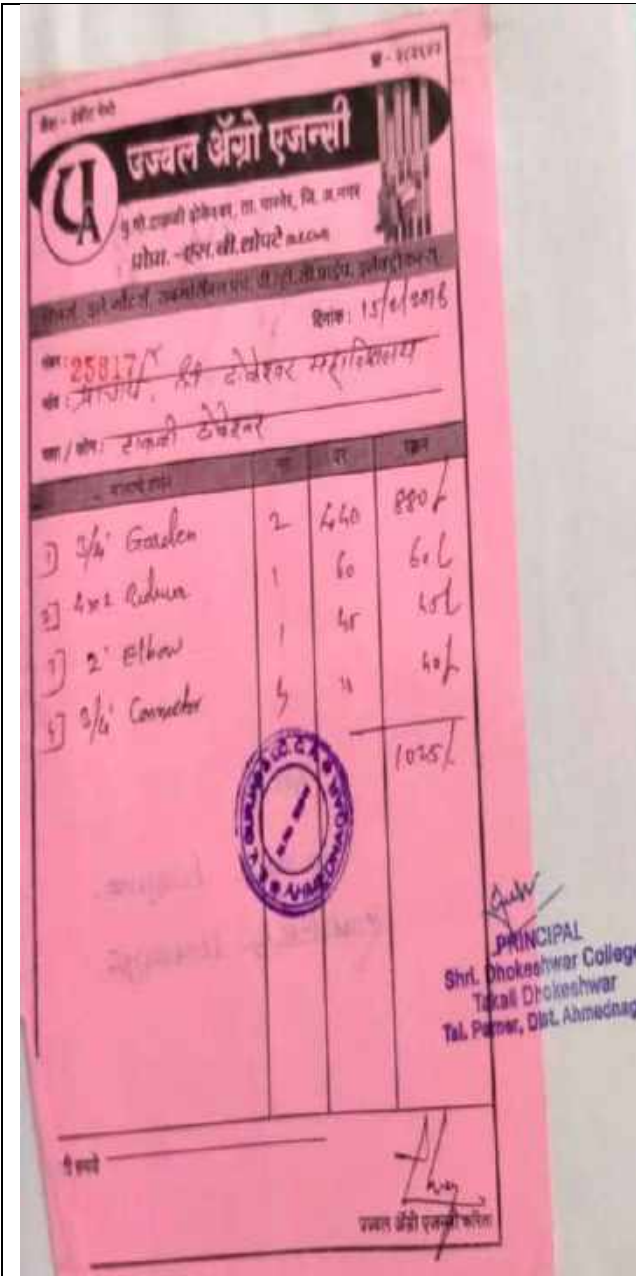 कॅश - क्रेडीट मेमो
उज्वल ॲग्रो एजन्सी
PA
मु.पो. टाकळी ढोकेश्वर, ता. पारनेर, जि. अ.नगर
प्रोप्रा.-एस.बी.शोपटे
दिनांक: 15/ /2016
नंबर: 25817
नांव: प्राचार्य, श्री ढोकेश्वर महाविद्यालय
टाकळी ढोकेश्वर
दर
1] 3/4" Garden 2 440 880/-
2] Reducer 1 60 60/-
3] 2" Elbow 1 45 45/-
4] 3/4" Connector 4 " 40/-
1025/-
PRINCIPAL
Shri. Dhokeshwar College
Takali Dhokeshwar
Tal. Parner, Dist. Ahmednag
उज्वल ॲग्री एजन्सी करिता